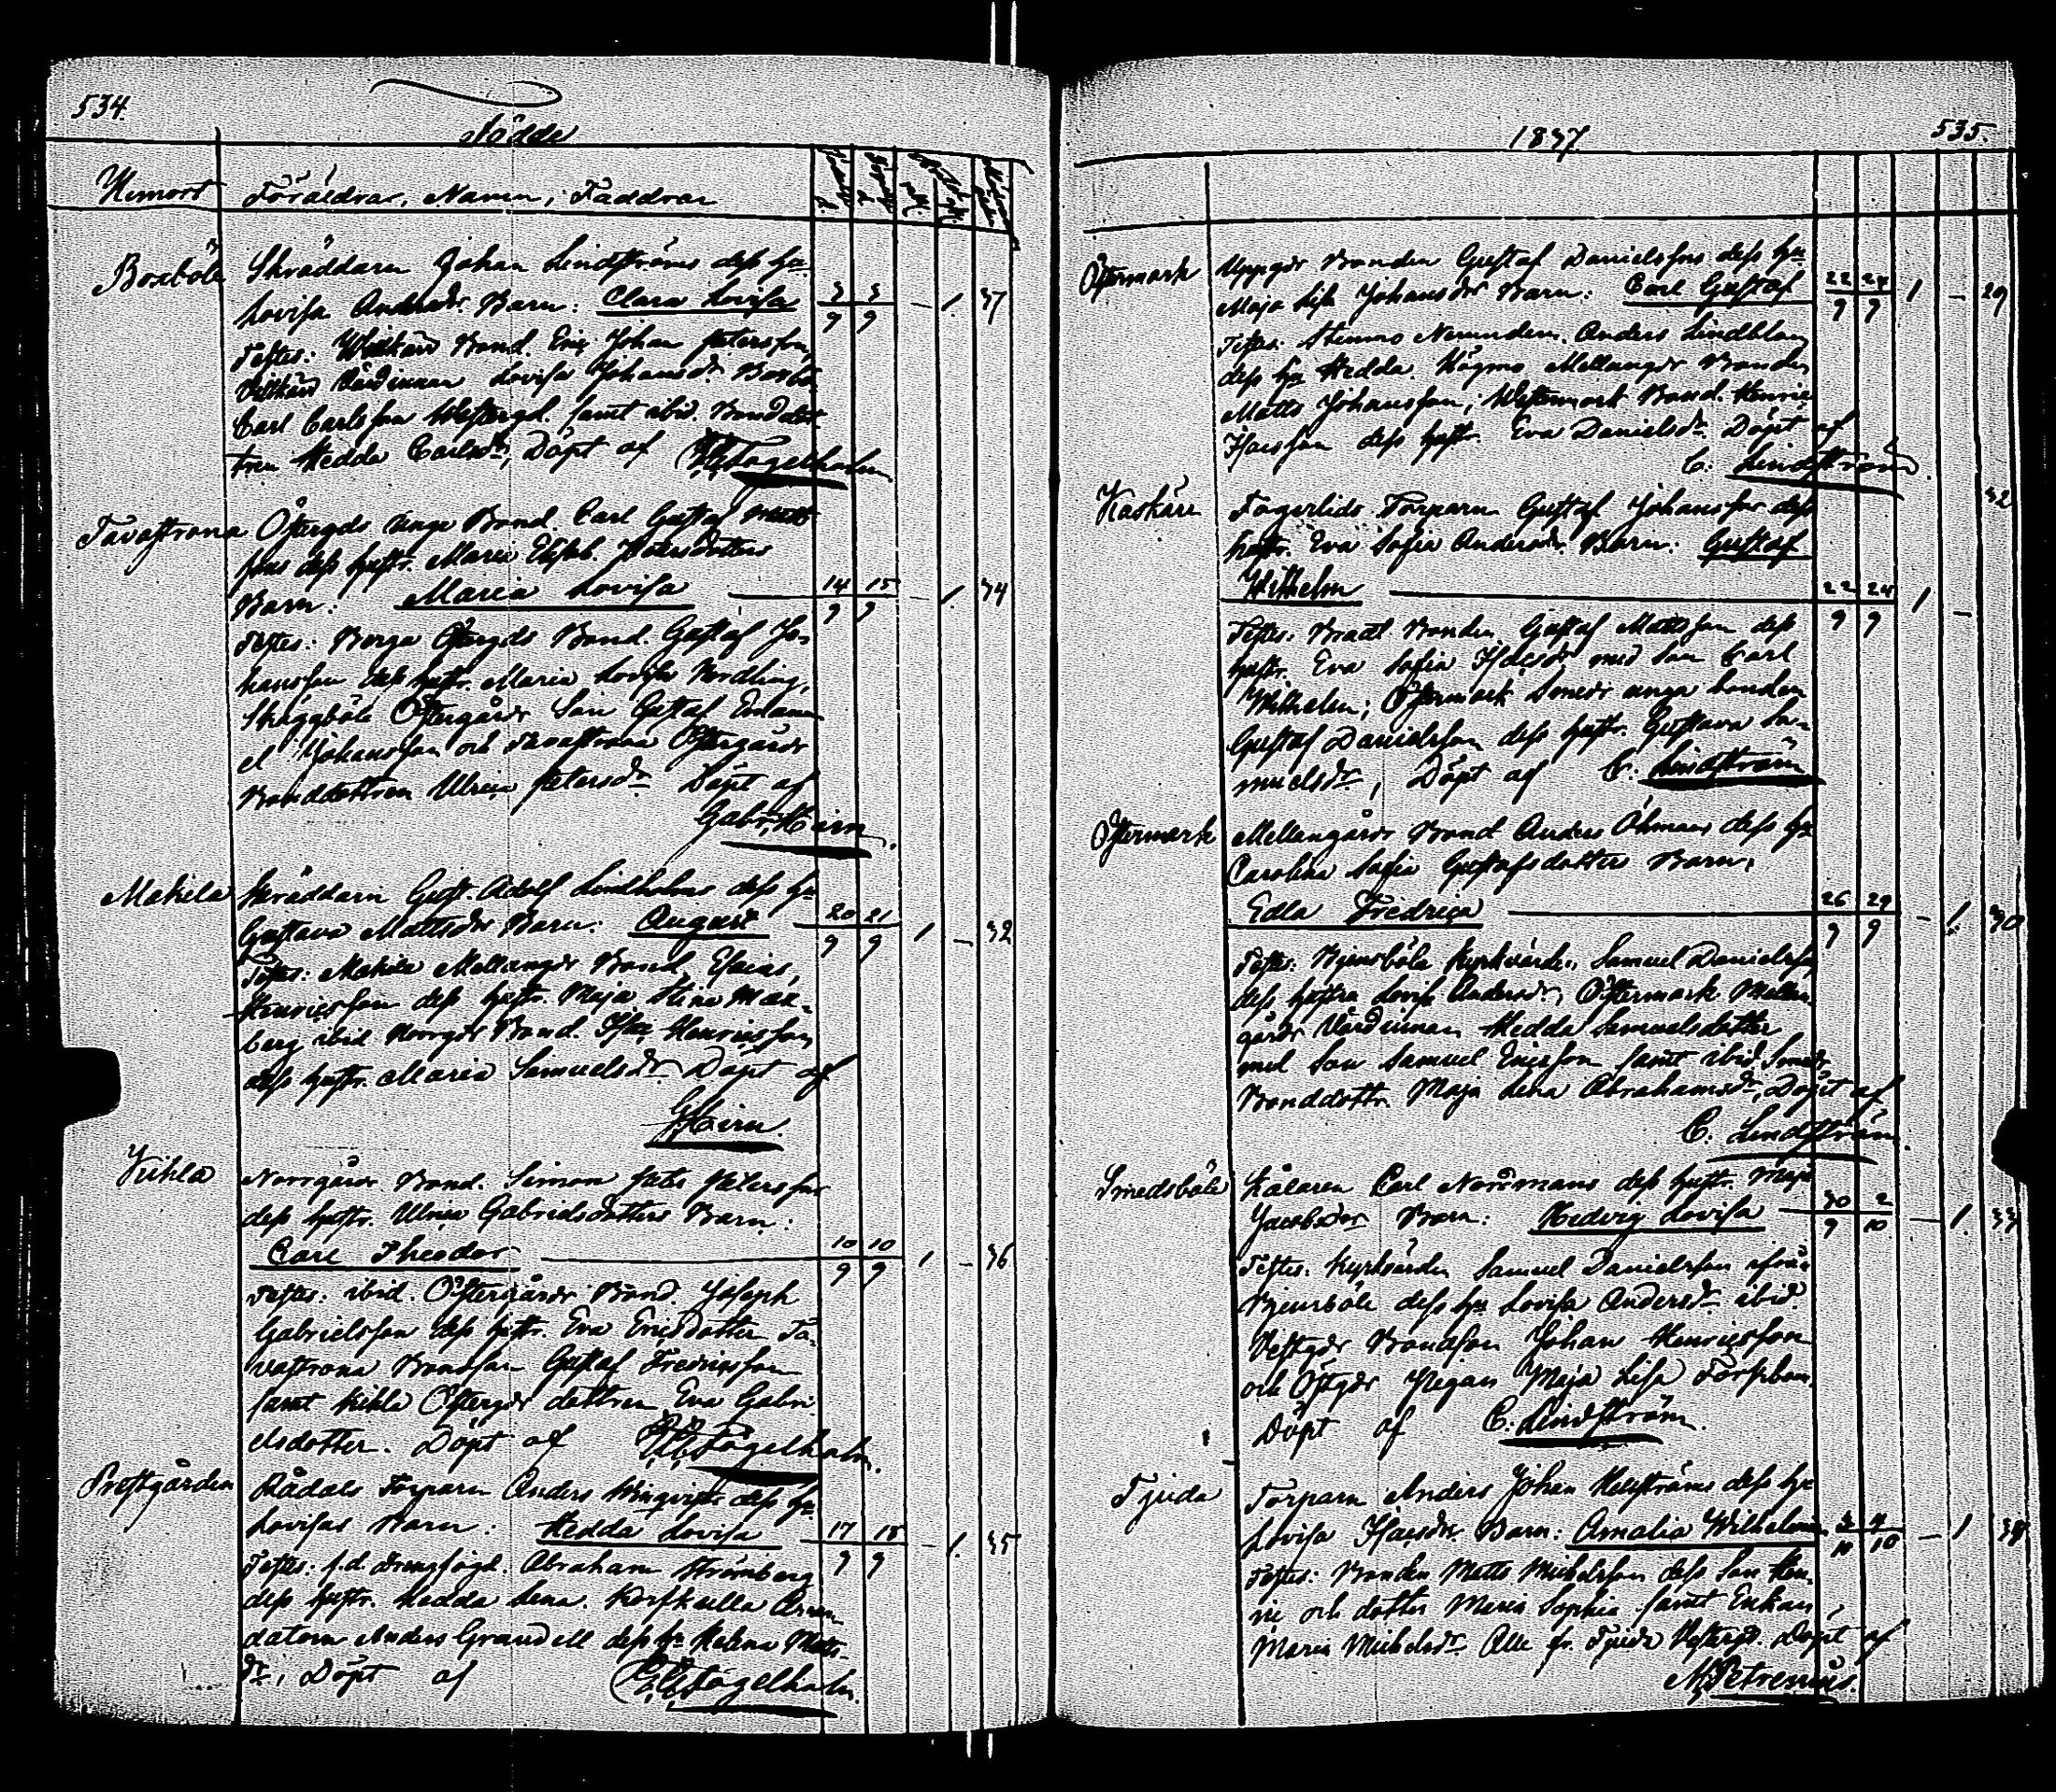 534.
Födde
Hemort
Föräldrar, Namn, Faddrar
Boxböle
Skräddarn Johan Lindströms dess hu
Lovisa Andersdr. Barn: Clara Lovisa 3/9 3/9 – 1. 37
Testes: Bond. Eric Johan Petersson,
Värdinnan Lovisa Johansdr. Boxböle
Carl Carlsson Westergd. samt ibid. Bonddot-
tren Hedda Carlsdr, Döpt af Fogelholm
Tavastrona
Östergds unge Bond. Carl Gustaf Matts
sons dess hustr. Maria Elisab. Petersdotters
Barn: Maria Lovisa 14/9 15/9 – 1. 34
Testes: Berga Östergds Bond. Gustaf Jo-
hansson dess hustr. Maria Lovisa Nordling,
Skäggböle Östergårds Son Gustaf Emanu
el Johansson och Tavastrona Östergårds
Bonddottren Ulrica Petersdr Döpt af
Gabr. Hirn
Makila
Skräddarn Gust. Adolf Lindholms dess hu
Gustava Mattsdrs Barn: August 20/9 21/9 1 – 32
Testes: Makila Mellangds Bond. Esaias
Henricsson dess hustr. Maja Stina Max-
berg ibid Norrgds Bond. Isac Henricsson
dess hustr. Maria Samuelsdr. Döpt af
G. Hirn.
Kihla
Norrgårds Bond. Simon Peter Peterssons
dess hustr. Ulrica Gabrielsdotters Barn:
Carl Theodor 10/9 10/9 1 – 36
Testes: ibid. Östergårds Bond. Joseph
Gabrielsson dess hustr. Eva Ericsdotter Ta-
vastrona Bondson Gustaf Fredricsson
samt Kihla Östergds dottren Eva Gabri-
elsdotter. Döpt af Fogelholm.
Prestgården
Rådals Torparn Anders Winqvists dess hu
Lovisas Barn: Hedda Lovisa 17/9 18/9 – 1. 35
Testes: f.d. Drengfogd. Abraham Strömberg
dess hustr. Hedda Lena. Korskulla Arren
datorn Anders Grandell dess hu Helena Matts-
dr, Döpt af Fogelholm.
1837
535.
Östermark
Uppgds Bonden Gustaf Danielssons dess hu
Maja Lisa Johansdrs Barn: Carl Gustaf 22/9 24/9 1 – 29
Testes: Nemndem. Anders Lindblom
dess hu Hedda. Högmo Mellangds Bonden
Matts Johansson; Westermark Bond. Henric
Isacsson dess hustr. Eva Danielsdr. Döpt af
C. Lindström
Kaskäri
Fagerlids Torparn Gustaf Johanssons dess
hustr. Eva Sofia Andersdr. Barn: Gustaf
Wilhelm 22/9 24/9 1 – 32
Testes: Braat Bonden Gustaf Mattsson dess
hustr. Eva Sofia Isacsdr med Son Carl
Wilhelm; Östermark Smeds unga bonden
Gustaf Danielsson dess hustr. Gustava Sa-
muelsdr, Döpt af C. Lindström
Östermark
Mellangårds Bond Anders Öhmans dess hu
Carolina Sofia Gustafsdotters Barn,
Edla Fredrica 26/9 29/9 – 1. 30
Testes: Bjensböle Kyrkvärden, Samuel Danielsson
dess hustru Lovisa Andersdr, Östermark Mellan-
gårds Värdinnan Hedda Samuelsdotter
med Son Samuel Ericsson samt ibid. Smeds
Bonddottr. Maja Lena Abrahamsdr, Döpt af
C. Lindström.
Smedsböle
Målaren Carl Norrmans dess hustr. Maja
Jacobsdrs Barn: Hedvig Lovisa 30/9 2/10 – 1. 33
Testes: Kyrkvärden Samuel Danielsson ifrån
Bjensböle dess hu Lovisa Andersdr ibid.
Vestgds Bondson Johan Henricsson
och Östgds Pigan Maja Lisa
Döpt af C. Lindström.
Tjuda
Torparn Anders Johan Hellströms dess hu
Lovisa Isacsdrs Barn: Amalia Wilhelmina 3/10 4/10 – 1 38
Testes: Bonden Matts Michelsson dess Son Hen-
ric och dotter Maria Sophia samt Enkan
Maria Michelsdr. Alle fr. Tjuda Vestergd. Döpt af
M. Petrenius.